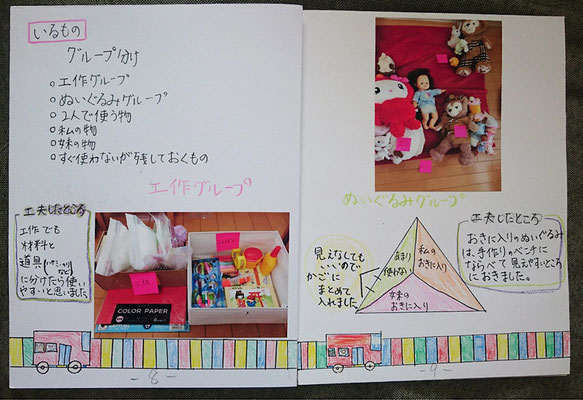 いるもの
グループ分け
○工作グループ
○ぬいぐるみグループ
○2人で使う物
○私の物
○妹の物
○すぐ使わないが残しておくもの
工作グループ
工夫したところ
工作でも
材料と
道具(ハサミ、のりなど)
に分けたら使い
やすいと思いました。
COLOR PAPER
-8-
ぬいぐるみグループ
見えなくても
いいので
かごに
まとめて
入れました
あまり
使わない
私の
お気に入り
妹の
お気に入り
工夫したところ
お気に入りのぬいぐるみ
は、手作りのベンチに
ならべて見えやすいところ
におきました。
-9-